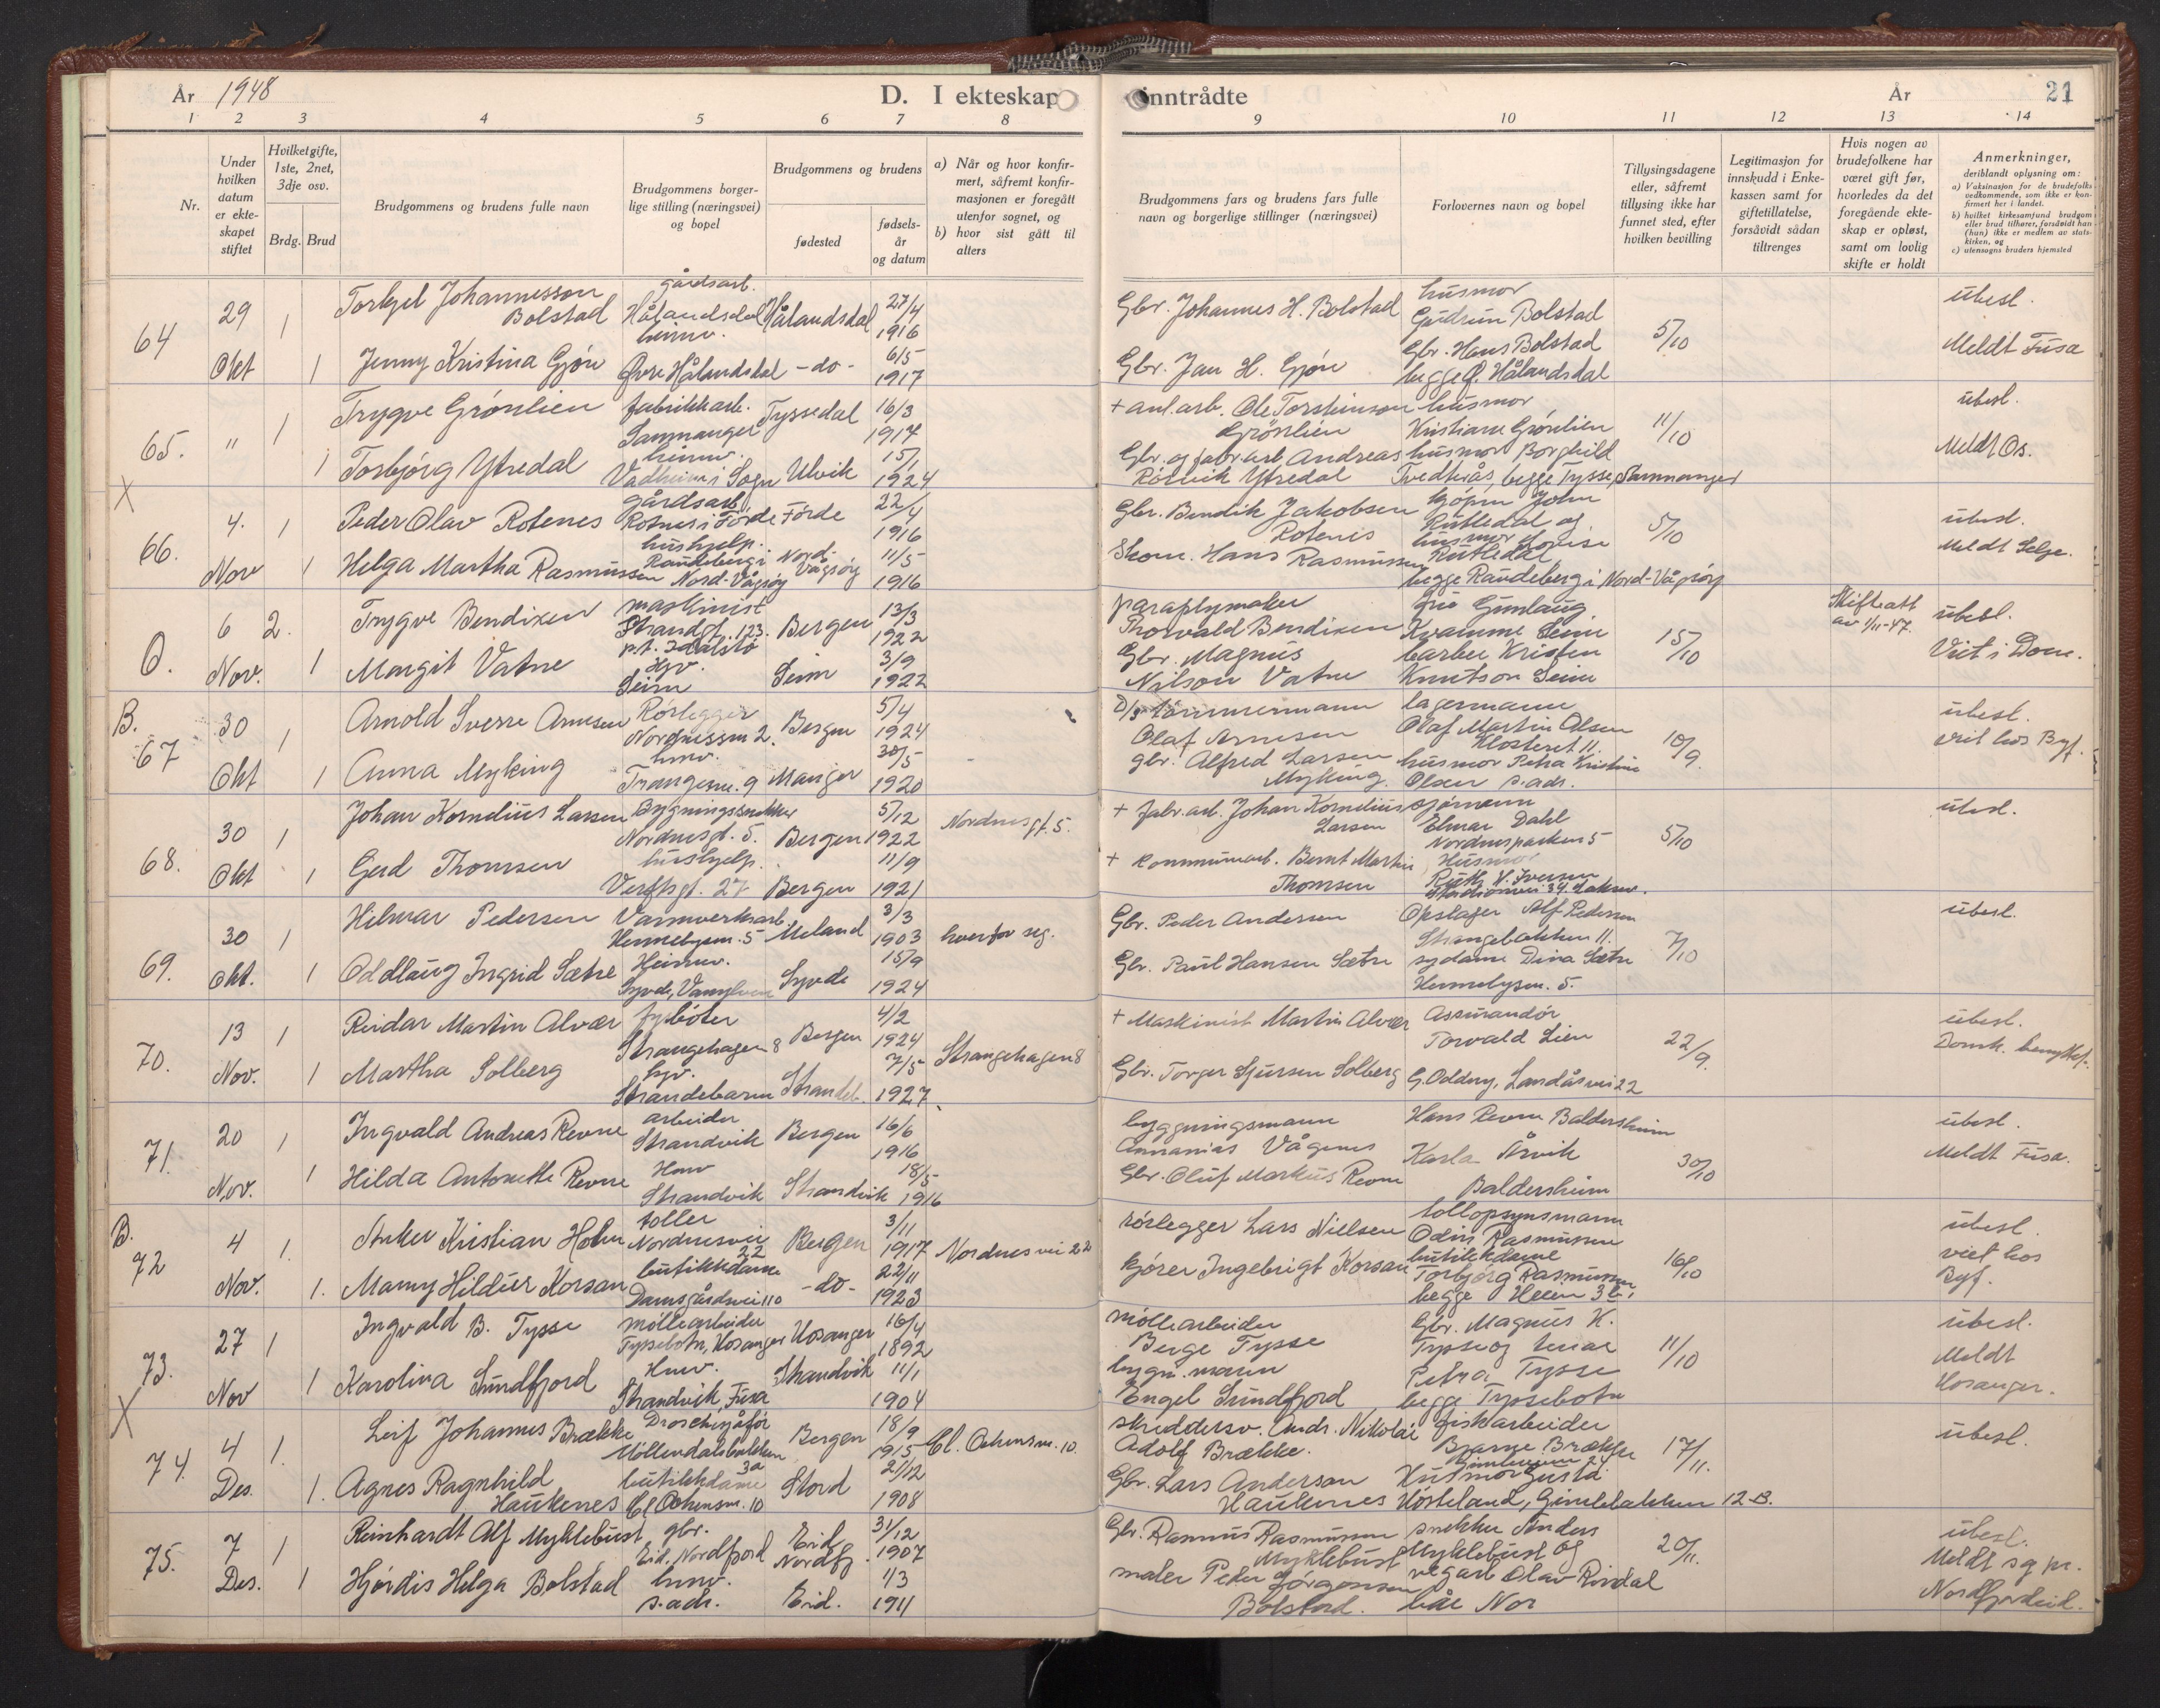 År 1948
D. I ekteskap
inntrådte
År
21
1 2 3 4 5 6 7 8
9 10 11 12 13 14
Nr.
Under hvilken datum er ekteskapet stiftet
Hvilket gifte, 1ste, 2net, 3dje osv.
Brdg. Brud
Brudgommens og brudens fulle navn
Brudgommens borgerlige stilling (næringsvei) og bopel
Brudgommens og brudens
fødested
fødselsår og datum
a) Når og hvor konfirmert, såfremt konfirmasjonen er foregått utenfor sognet, og
b) hvor sist gått til alters
Brudgommens fars og brudens fars fulle navn og borgerlige stillinger (næringsvei)
Forlovernes navn og bopel
Tillysingsdagene eller, såfremt tillysing ikke har funnet sted, efter hvilken bevilling
Legitimasjon for innskudd i Enkekassen samt for giftetillatelse, forsåvidt sådan tiltrenges
Hvis nogen av brudefolkene har været gift før, hvorledes da det foregående ekteskap er opløst, samt om lovlig skifte er holdt
Anmerkninger, deriblandt oplysning om:
a) Vaksinasjon for de brudefolks vedkommende, som ikke er konfirmert her i landet.
b) hvilket kirkesamfund brudgom eller brud tilhører, forsåvidt han (hun) ikke er medlem av statskirken, og
c) utensogns bruders hjemsted
64 29 Okt 1 Torkjel Johannesson Bolstad gårdsarb. Hålandsdal Hålandsdal 27/4 1916 Gbr. Johannes H. Bolstad husmor Gudrun Bolstad 5/10 ubesl.
1 Jenny Kristina Gjøn heimv. Øvre Hålandsdal -do- 6/5 1917 Gbr. Jan H. Gjøn Gbr. Hans Bolstad begge Ø. Hålandsdal Meldt Fusa
65. " 1 Trygve Grønlien fabrikkarb. Samnanger Tyssedal 16/3 1917 + anl.arb. Ole Torsteinson Grønlien husmor Kristiane Grønlien 11/10 ubesl.
X 1 Torbjørg Ytredal heimv. Vadheim i Sogn Ulvik 15/1 1924 Gbr. og fabr.arb Andreas Ytredal husmor Borghild Tvedterås, begge Tysse, Samnanger Meldt Os.
66. 4. Nov 1 Peder Olav Rotenes gårdsarb. Rotnes i Førde Førde 22/4 1916 Gbr. Bendik Jakobsen Rotenes kjøpm John Rutledal og 5/10 ubesl.
1 Helga Martha Rasmussen hushjelp. Raudeberg i Nord-Vågsøy Nord-Vågsøy 11/5 1916 Skom. Hans Rasmussen husmor Lovise Rutledal begge Raudeberg i Nord-Vågsøy Meldt Selje.
O. 6 Nov. 2. Trygve Bendixen maskinist Strandgt. 123. p.t. Idalstø Bergen 13/3 1922 paraplymaker Thorvald Bendixen fru Gunlaug Kvamme Seim 15/10 Skifteatt av 1/11-47. ubesl.
1 Margit Vatne Hjv. Seim Seim 3/9 1922 Gbr. Magnus Nilson Vatne barber Kristen Knutson Seim Viet i Dom.
B. 67 30 Okt 1 Arnold Sverre Arnesen Rørlegger Nordnessm 2. Bergen 5/4 1924 D/s tømmermann Olaf Arnesen lagermann Olaf Martin Olsen Klosteret 11. 10/9. ubesl.
1 Anna Myking hmv. Trangesm. 9 Manger 30/5 1920 gbr. Alfred Larsen Myking. husmor Petra Kristine Olsen s.adr. viet hos Byf.
68. 30 Okt 1 Johan Kornelius Larsen Bygningssnekker Nordnesgt. 5. Bergen 5/12 1922 Nordnesgt. 5. + fabr.arb. Johan Kornelius Larsen sjømann Elmar Dahl Nordnesparken 5 5/10 ubesl.
1 Gerd Thomsen hushjelp. Verftsgt. 27 Bergen 11/9 1921 + Kommunearb. Bernt Martin Thomsen Husmor Ruth V. Iversen
69. 30 Okt. 1 Hilmar Pedersen Varmverksarb. Hennebysm. 5 Meland 3/3 1903 hver for seg. Gbr. Peder Andersen Opslager Alf Pedersen Strangebakken 11. 7/10 ubesl.
1 Oddlaug Ingrid Sætre Heimv. Syvde, Vanylven Syvde 15/9 1924 Gbr. Paul Hansen Sætre sydame Dina Sætre Hennebysm. 5.
70. 13 Nov. 1 Reidar Martin Alvær fyrbøter Strangehagen 8 Bergen 4/2 1924 Strangehagen 8 + Maskinist Martin Alvær Assurandør Torvald Lien 22/9. ubesl.
1 Martha Solberg hjv. Strandebarm Strandeb. 7/5 1927. Gbr. Torger Sjursen Solberg G. Oddny, Landåsvei 22 Domk. benyttet.
71. 20 Nov. 1 Ingvald Andreas Revne arbeider Strandvik Bergen 16/6 1916 byggningsmann Annanias Vågenes Hans Revne Baldersheim 30/10 ubesl.
1 Hilda Antonette Revne Hmv Strandvik Strandvik 18/5 1916 Gbr. Oluf Markus Revne Karla Årvik Baldersheim Meldt Fusa.
B. 72 4 Nov. 1. Anker Kristian Holm toller Nordnesvei 22 Bergen 3/11 1917 Nordnesvei 22 rørlegger Lars Nielsen tollopsynsmann Odin Rasmussen 16/10 ubesl.
1. Mamy Hildur Korsan butikkdame Damsgårdsvei 110 -do- 22/11 1923 kjører Ingebrigt Korsan butikkdame Torbjørg Rasmussen begge Heien 3 viet hos Byf.
73. 27 Nov 1 Ingvald B. Tysse møllearbeider Tyssebotn, Hosanger Hosanger 16/4 1892 møllearbeider Berge Tysse Gbr. Magnus K. Tysse og 11/10 ubesl.
X 1 Karolina Sundfjord Hmv. Strandvik, Fusa Strandvik 11/1 1904 bygn.mann Engel Sundfjord Petra Tysse begge Tyssebotn Meldt Hosanger.
74. 4 Des. 1. Leif Johannes Brække Droschesjåfør Møllendalsbakken 3a Bergen 18/9 1915 Cl. Ockensm. 10. skreddersv. Andr. Nikolai Adolf Brække. fiskarbeider Bjarne Brække 17/11. ubesl.
1. Agnes Ragnhild Haukenes butikkdame Cl Ockensm. 10 Stord 21/12 1908 Gbr. Lars Anderson Haukenes Husmor Gusta Hosteland, Gimlebakken 12-B.
75. 7 Des. 1 Reinhardt Alf Myklebust gbr. Eid, Nordfjord Eid Nordfj. 31/12 1907 Gbr. Rasmus Rasmussen Myklebust snekker Anders Myklebust og 20/11. ubesl.
1 Hjørdis Helga Bolstad hmv. s.adr. Eid. 1/3 1911 maler Peder Jørgensen Bolstad. vegarb Olav Rivedal båe Nor Meldt sg pr. Nordfjordeid.